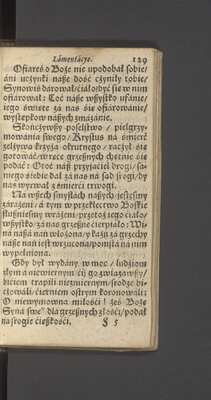 Lámentácye. 129
Ofiareś o Boże nie upodobał sobie/
áni uczynki náße dość czyniły tobie:
Synowiś dárował/ciáło obyć się w nim
ofiárował: Toć náße wßytko ufánie/
iego święte zá nas się ofiárowánie/
występkow náßych zmázánie.
Skończywßy poselstwo / pielgrzy
mowánia swego / Krystus ná śmierć
zelżywą krzyżá okrutnego / ráczył się
gotowáć/w ręce grzeßnych chętnie się
podáć: Otoż náß przyiaciel drogi/sá-
mego siebie dał zá nas ná sąd srogi/by
nas wyrwał z śmierci trwogi.
Ná wßech smysłách náßych iestesmy
záráżeni / á tym w przeklęctwo Boskie
słußnieśmy wráżeni/przetoż iego ciáło/
wßytko/zá nas grzeßne cierpiáło: Wi-
ná náßá nań włożona/ kaźń zá grzechy
náße nań iest wrzucona/pomstá ná nim
wypełniona.
Gdy był wydány w moc / ludziom
złym á niewiernym / ci go związawßy/
biczem trapili niezmiernym/srodze bi-
czowáli/cierniem ostrym koronowáli:
O niewymowna miłości ! żeś Boże
Syná swe° dla grzeßnych złości/podał
ná srogie ciężkości. S 5